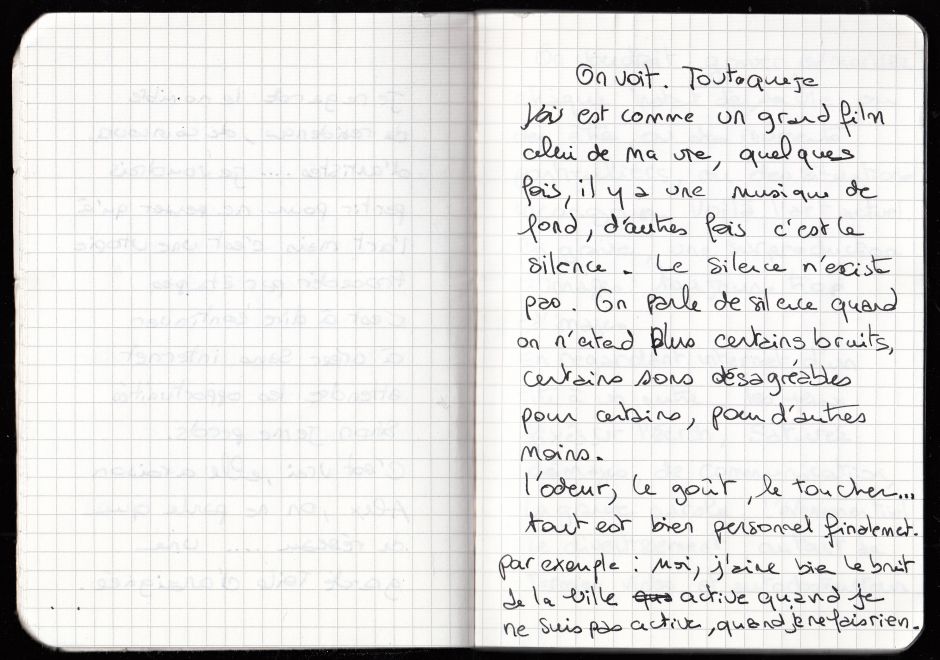 On voit. Tout ce que je
vois est comme un grand film
celui de ma vie, quelques
fois, il y a une musique de
fond, d'autres fois c'est le
silence. Le silence n'existe
pas. On parle de silence quand
on n'etend plus certains bruits,
certains sons désagréables
pour certains, pour d'autres
moins.
l'odeur, le goût, le toucher...
tout est bien personnel finalement.
par exemple : moi, j'aime bien le bruit
de la ville active quand je
ne suis pas active, quand je ne fais rien.